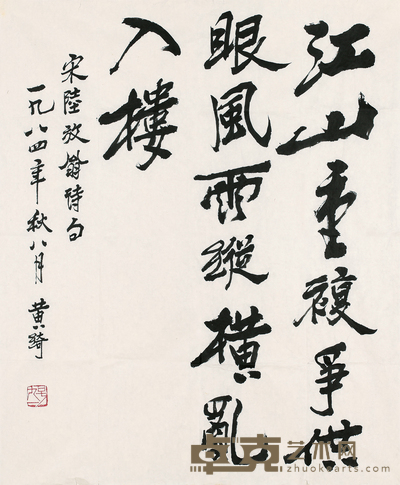 江山重複爭供
眼風雨縱橫亂
入樓
宋陸放翁詩句
一九八四年秋八月 黄綺
卓克艺术网
zhuokearts.com